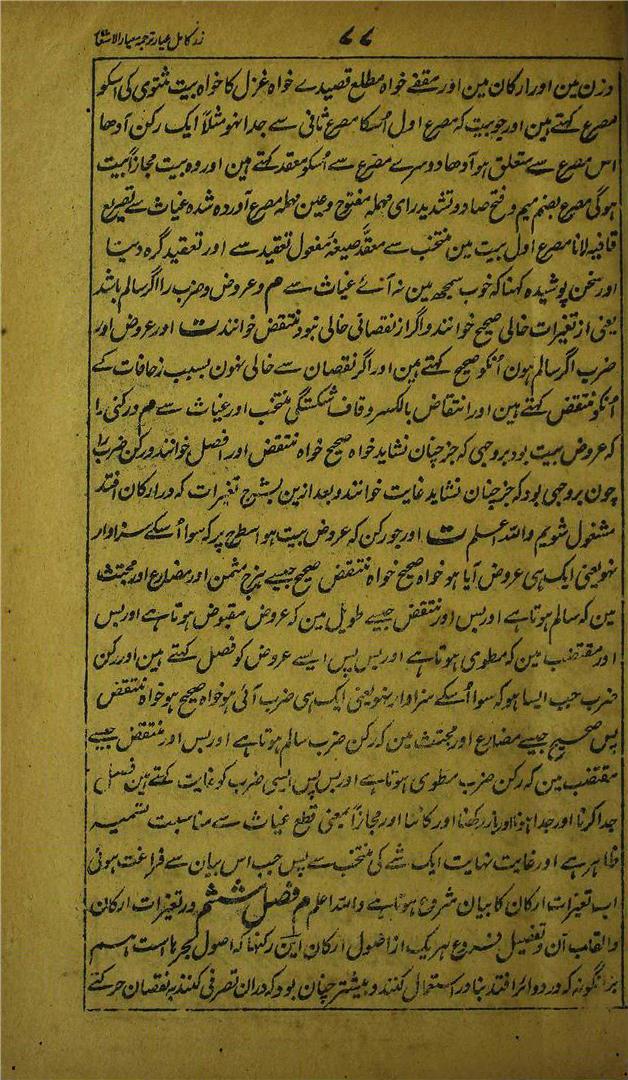 زر کامل عیار ترجمہ معیار الاشعار
۷۷
وزن مین اور ارکان مین اور مقفے خواہ مطلع قصیدے خواہ غزل کا خواہ بیت مثنوی کی اسکو
مصرع کہتے ہین اور جو بیت کہ مصرع اول اُسکا مصرع ثانی سے جدا نہو مثلاً ایک رکن آدھا
اس مصرع سے متعلق ہو آدھا دوسرے مصرع سے اُسکو معقد کہتے ہین اور وہ بیت مجازاً بیت
ہوگی مصرع بضم میم و فتح صاد و تشدید رای مہملہ مفتوح وعین مہملہ مصرع آوردہ شدہ غیاث سے تصریع
قافیہ لانا مصرع اول بیت مین منتخب سے معقد صیغہ مفعول تعقید سے اور تعقید گرہ دینا
اور سخن پوشیدہ کہنا کہ خوب سمجھ مین نہ آئے غیاث سے م و عروض و ضرب را اگر سالم باشد
یعنی از تغیرات خالی صحیح خوانند و اگر از نقصانی خالی نبود منتقض خوانند ت اور عروض اور
ضرب اگر سالم ہون اُنکو صحیح کہتے ہین اور اگر نقصان سے خالی نہون بسبب زحافات کے
اُنکو منتقض کہتے ہین اور انتقاض بالکسر و قاف شکستگی منتخب اور غیاث سے م و رکنی را
کہ عروض بیت بود بر وجہی کہ جز چنان نشاید خواہ صحیح خواہ منتقض اور افصل خوانند و رکن ضرب را
چون بر وجہی بود کہ جز چنان نشاید غایت خوانند و بعد ازین بشرح تغیرات کہ در ارکان افتد
مشغول شویم واللہ اعلم ت اور جو رکن کہ عروض بیت ہو اسطرح پر کہ سوا اُسکے سزاوار
نہو یعنی ایک ہی عروض آیا ہو خواہ صحیح خواہ منتقض صحیح جیسے ہزج مثمن اور مضارع اور مجتث
مین کہ سالم ہوتا ہے اور بس اور منتقض جیسے طویل مین کہ عروض مقبوض ہوتا ہے اور بس
اور مقتضب مین کہ مطوی ہوتا ہے اور بس پس ایسے عروض کو فصل کہتے ہین اور رکن
ضرب جب ایسا ہو کہ سوا اُسکے سزاوار نہو یعنی ایک ہی ضرب آئی ہو خواہ صحیح ہو خواہ منتقض
پس صحیح جیسے مضارع اور مجتث مین کہ رکن ضرب سالم ہوتا ہے اور بس اور منتقض جیسے
مقتضب مین کہ رکن ضرب مطوی ہوتا ہے اور بس پس ایسی ضرب کو غایت کہتے ہین فصل
جدا کرنا اور جدا ہونا اور باز رکھنا اور کاٹنا اور مجازاً بمعنی قطع غیاث سے مناسبت تسمیہ
ظاہر ہے اور غایت نہایت ایک شے کی منتخب سے پس جب اس بیان سے فراغت ہوئی
اب تغیرات ارکان کا بیان شروع ہوتا ہے واللہ اعلم م فصل ششم در تغیرات ارکان
و القاب آن و تفصیل فروع ہر یک از اصول ارکان این رکنہا کہ اصول بحرہا است ہم
برانگونہ کہ در دوائر افتد بنادر استعمال کنند و بیشتر چنان بود کہ دران تصرفی کنند بہ نقصان حرکتے